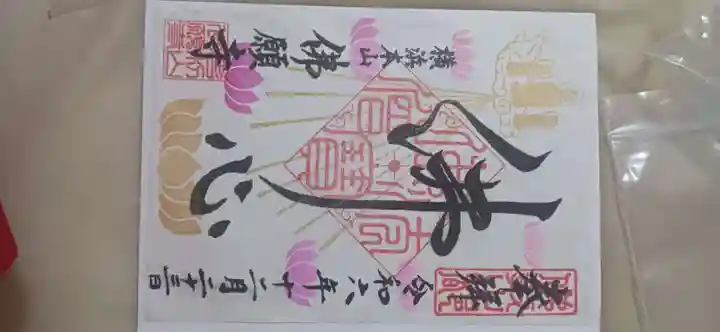 奉拝
令和六年十二月二十三日
佛心
横浜本山
佛願寺